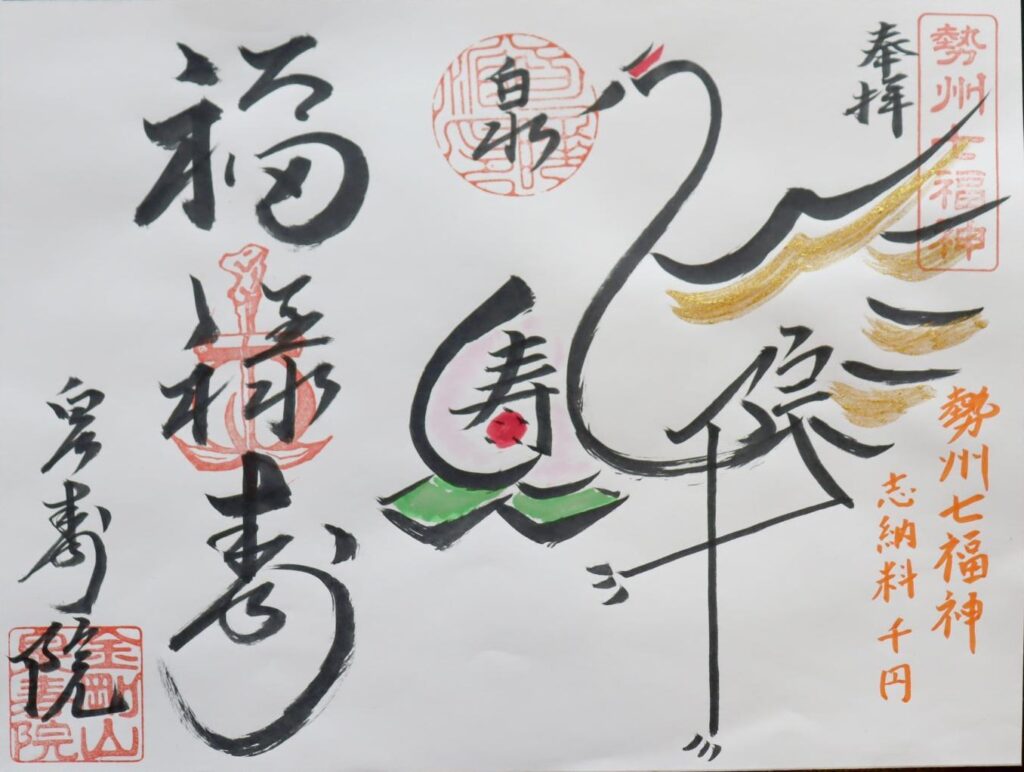 勢州七福神
奉拝
勢州七福神
志納料 千円
泉
寿
院
福禄寿
泉寿院
金剛山
泉寿院